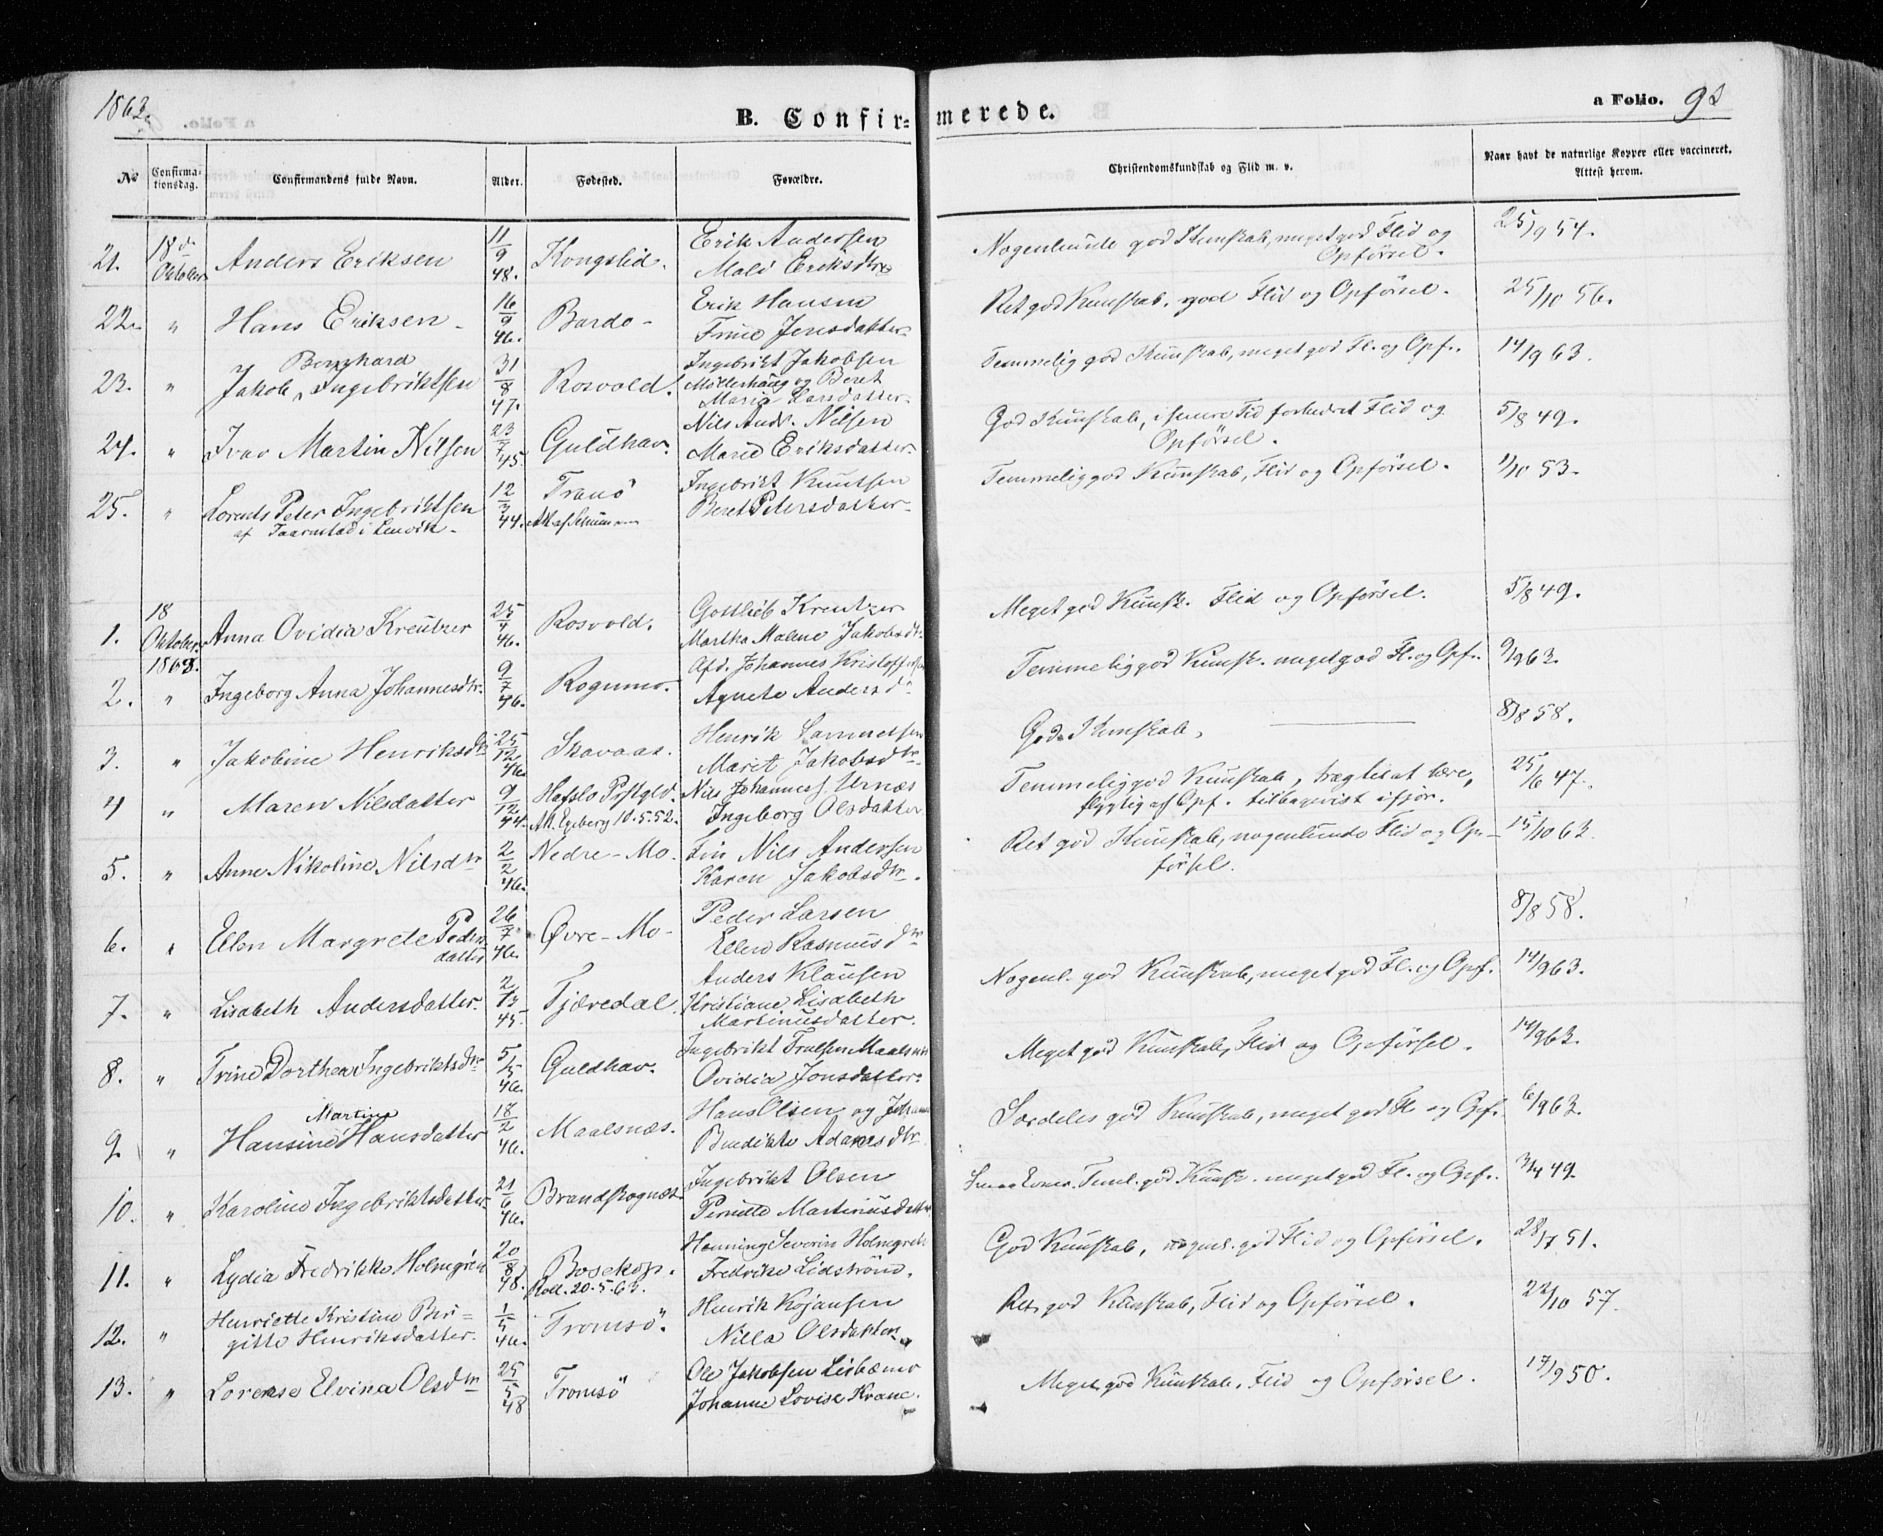 1863.
B. Confirmerede.
a Folio. 98
No
Confirmationsdag.
Confirmandens fulde Navn.
Alder.
Fødested.
Forældre.
Christendomskundskab og Flid m. v.
Naar havt de naturlige Kopper eller vaccineret. Attest herom.
21. 18de Oktober Anders Eriksen 11/9 48. Kongslid. Erik Andersen Nogenlunde god Kunskab, meget god Flid og 25/9 54.
Mali Eriksdtr Opførsel.
22. " Hans Eriksen 16/9 46. Bardo Erik Hansen Ret god Kunskab, god Flid og Opførsel. 25/10 56.
Trine Jensdatter
23. " Jakob Bernhard Ingebriktsen 31/8 47. Rosvold. Ingebrikt Jakobsen Temmelig god Kunskab, meget god Fl. og Opf. 14/9 63.
Møllerhaug og Beret
Maria Larsdatter
24. " Ivar Martin Nilsen 23/7 45. Guldhav. Nils And. Nilsen God Kunskab, i senere Tid forbedret Flid og 5/8 49.
Marie Eriksdatter Opførsel.
25. " Lorents Peter Ingebriktsen 12/3 44. Tranö Ingebrikt Knutsen Temmelig god Kunskab, Flid og Opførsel. 1/10 53.
af Taarnstad i Lenvik Att. af Beret Petersdatter
1. 18 Oktober 1863. Anna Ovidia Kreutzer 25/4 46. Rosvold. Gottlieb Kreutzer Meget god Kunsk. Flid og Opførsel. 5/8 49.
Martha Malene Jakobsdtr.
2. " Ingeborg Anna Johannesdtr. 9/7 46. Rognmo. Afd. Johannes Kristoffersen Temmelig god Kunsk. meget god Fl. og Opf. 9/9 63.
Agnete Andersd
3. " Jakobine Henriksdtr 25/12 46. Skavaas. Henrik God Kunskab, 8/8 58.
Marit Jakobsdtr
4 " Maren Nilsdatter 9/12 44. Hafslo Prstgld. Nils Johannes. Urnæs Temmelig god Kunskab, træg til at lære, 25/6 47.
Att. Egeberg 10.5.52. Ingeborg Olsdatter flygtig af Opf. tilbagevist ifjor.
5. " Anne Nikoline Nilsdtr 2/2 46. Nedre-Mo. Fin Nils Andersen Ret god Kunskab, nogenlunde Flid og Op- 15/10 63.
Karen Jakobsdtr. førsel.
6. " Ellen Margrete Pedersdatter 26/7 46. Øvre-Mo Peder Larsen 8/8 58.
Ellen Rasmusdtr
7. " Lisabeth Andersdatter. 2/12 45. Tjæredal Anders Klausen Nogenl. god Kunskab, meget god Fl. og Opf. 14/9 63.
Kristiane Lisabeth
Martinusdatter.
8. " Trine Dorthea Ingebriktsdtr 5/5 46. Guldhav. Ingebrikt Trulsen Maalsnæs Meget god Kunskab, Flid og Opførsel. 14/9 63.
Ovidia Jonsdatter
9. " Hansine Martine Hansdatter 18/2 46. Maalsnæs. Hans Olsen og Johanna Særdeles god Kunskab, meget god Fl og Opf. 6/9 63.
Benedikte Adamsdtr
10. " Karoline Ingebriktsdatter 21/6 46. Brandskognæs. Ingebrikt Olsen Smaa Evner. Teml. god Kunsk. meget god Fl. og Opf. 3/4 49.
Pernille Martinusdatter
11. " Lydia Fredrikke Holmgren 20/8 48. Bosekop. Henning Severin Holmgren God Kunskab, nogenl. god Flid og Opførsel. 28/7 51.
20.5.63. Fredrike Lidström.
12. " Henriette Kristine Bir- 1/5 46. Tromsö. Henrik Kojansen Ret god Kunskab, Flid og Opførsel. 22/10 57.
gitte Henriksdatter. Nilla Olsdatter
13. " Lorense Elvina Olsdtr 25/5 48 Tromsö Ole Jakobsen Meget god Kunskab, Flid og Opførsel. 17/9 50.
Johanne Lovise Krane.